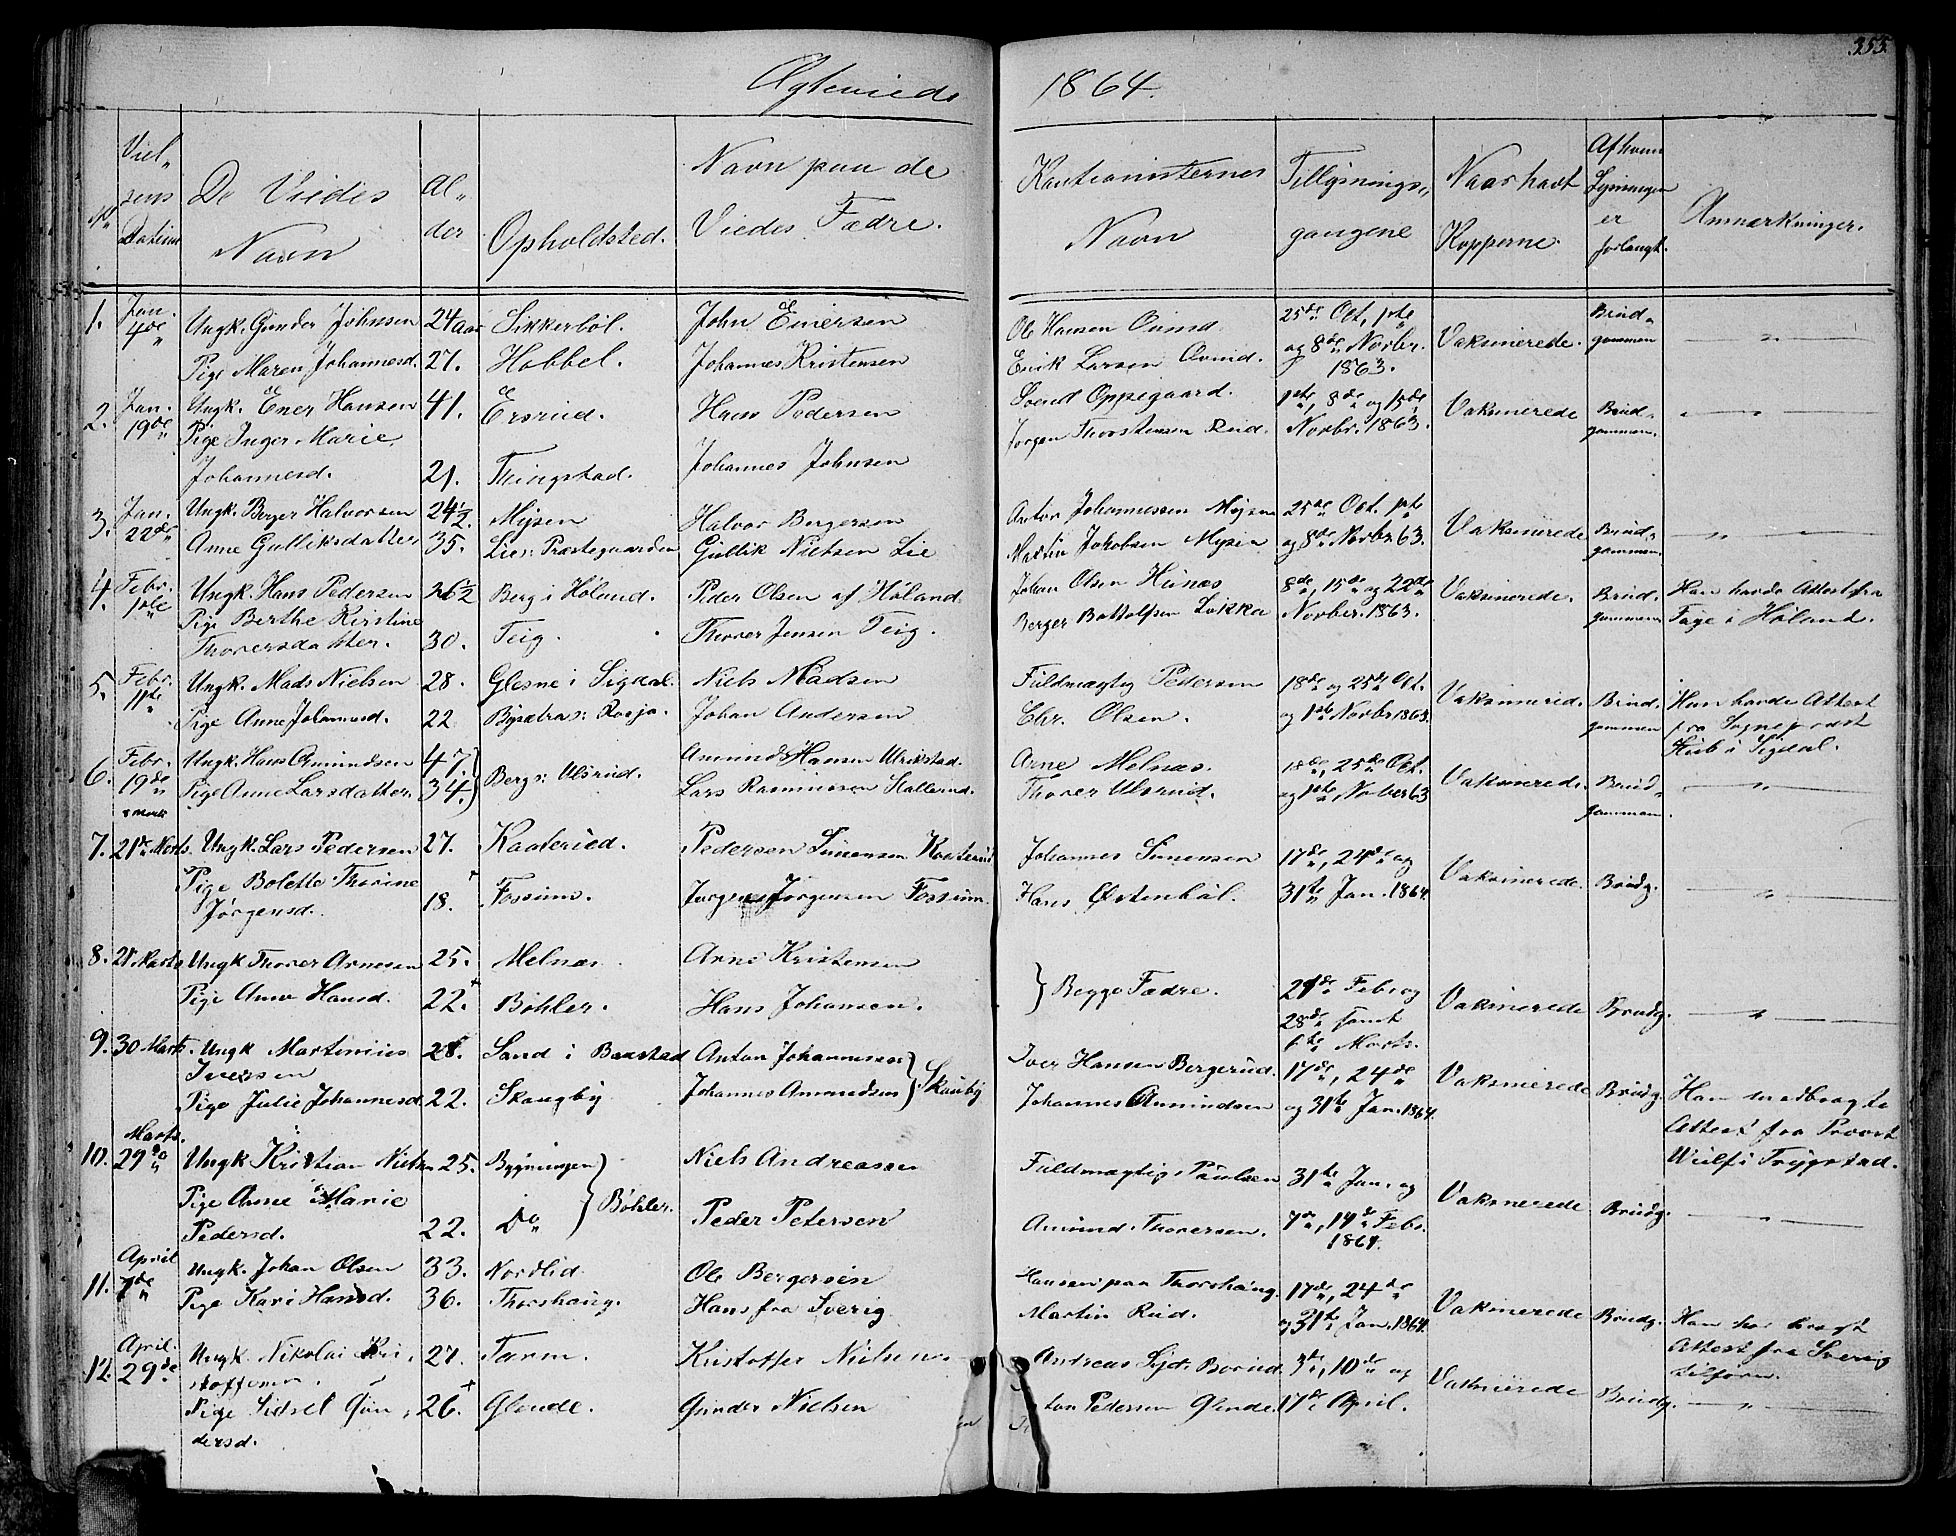 355.
Ægteviede 1864.
No
Viel„
sens
Datum
De Viedes
Navn
Al„
der
Opholdsted.
Navn paa de
Viedes Fædre.
Kautionisternes
Navn
Tillysnings„
gangene
Naar havt
Kopperne.
Af hvem
Lysningen
er
forlangt.
Anmærkninger.
1. Jan. 4de Ungk. Gunder Johnsen 24 aar Sikkerböl. John Enersen Ole Hansen 25de Oct, 1ste Vaksinerede. Brud„
Pige Maren Johannesd. 27. Hobbel. Johannes Kristensen Erik Larsen og 8de Novbr. 1863. gommen
2. Jan. 19de Ungk. Ener Hansen 41. Ersrud. Hans Pedersen Svend Oppegaard. 1ste, 8de og 15de Vaksinerede Brud„
Pige Inger Marie Jørgen Thorstensen Rud. Novbr. 1863. gommen.
Johannesd. 21. Tingstad. Johannes Johnsen
3. Jan. 22de Ungk. Berger Halvorsen 24½. Mysen Halvor Bergersen Anton Johannessen Mysen 25de Oct. 1ste Vaksinerede Brud„
Anne Gulliksdatter 35. Lier: Præstegaarden Gullik Nielsen Lie Martin Jakobsen Mysen og 8de Novbr 63. gommen.
4. Febr. 1ste Ungk. Hans Pedersen 26½ Berg i Höland. Peder Olsen af Höland. Johan Olsen 8de, 15de og 22de Vaksinerede. Brud„ Han havde Attest fra
Pige Berthe Kirstine Berger Bottolfsen Løkka Novber. 1863. gommen Fage i Höland.
Thoversdatter. 30. Teig. Thover Jensen Teig.
5. Febr. 11te Ungk. Mads Nielsen 28. Glesne i Sigdal. Niels Madsen Fuldmægtig Pedersen 18de og 25de Oct. Vaksinered. Brud„ Han havde Attest
Pige Anne Johannesd. 22 Johan Andersen Chr. Olsen. og 1ste Novbr 1863. gommen fra Sogneprest
i Sigdal.
6. Febr. 19de Ungk. Hans Amundsen 47. Bergs: Ulsrud. Amund Hansen Ulrikstad. Arne Melnæs. 18de, 25de Oct. Vaksinerede. Brud„
Pige Anne Larsdatter. 34. Lars Rasmussen Kallerud. Thover Ulsrud. og 1ste Novber 63 gommen.
7. 21de Marts. Ungk. Lars Pedersen 27. Kaaterud. Pedersen Simensen Kaaterud Johannes Simensen 17de, 24de og Vaksinerede. Brudg.
Pige Bolette Thorine
Jörgensd. 18. Fossum. Jørgen Jørgensen Fossum. Hans Østenböl. 31te Jan. 1864.
8. 21 Marts Ungk Thover Arnesen 25. Melnæs. Arne Kristensen } Begge Fædre. 21de Feb. og Vaksinerede Brudg.
Pige Anne Hansd. 22. Böhler. Hans Johansen. 28de samt
6te Marts.
9. 30 Marts. Ungk Martinius 28. Sand i Baastad Anton Johannessen } Skaugby Iver Hansen Bergerud. 17de, 24de Vaksinerede Brudg. Han medbragte
Iversen
Pige Julie Johannesd. 22. Skaugby Johannes Amundsen Johannes Amundsen og 31te Jan. 1864. Attest fra Provst
Wulf i Trygstad.
10. Marts. 29de Ungk Kristian Nielsen 25. Bygningen } Böhler. Niels Andreassen Fuldmægtig Paulsen 31te Jan. og Vaksinerede Brudg.
Pige Anne Marie
Pedersd. 22. Do Peder Petersen Amund Thoversen. 7de, 14de Feb. 1864.
11. April 7de Ungk. Johan Olsen 33. Nordlid Ole Bergersen Hansen paa Thorshaug. 17de, 24de Vaksinerede Brudg. Han har bragt
Pige Kari Hansd. 36. Thorshaug. Hans fra Sverig Martin Rud. og 31te Jan. 1864. Attest fra Sverig
tilforn.
12. April. 29de Ungk. Nikolai Kri„ 27. Tærm. Kristoffer Nielsen. Andreas Borud 3de, 10de og Vaksinerede Brudg.
stoffersen.
Pige Sidsel Gun„ 26. Glende. Gunder Nielsen Pedersen Glende. 17de April.
dersd.